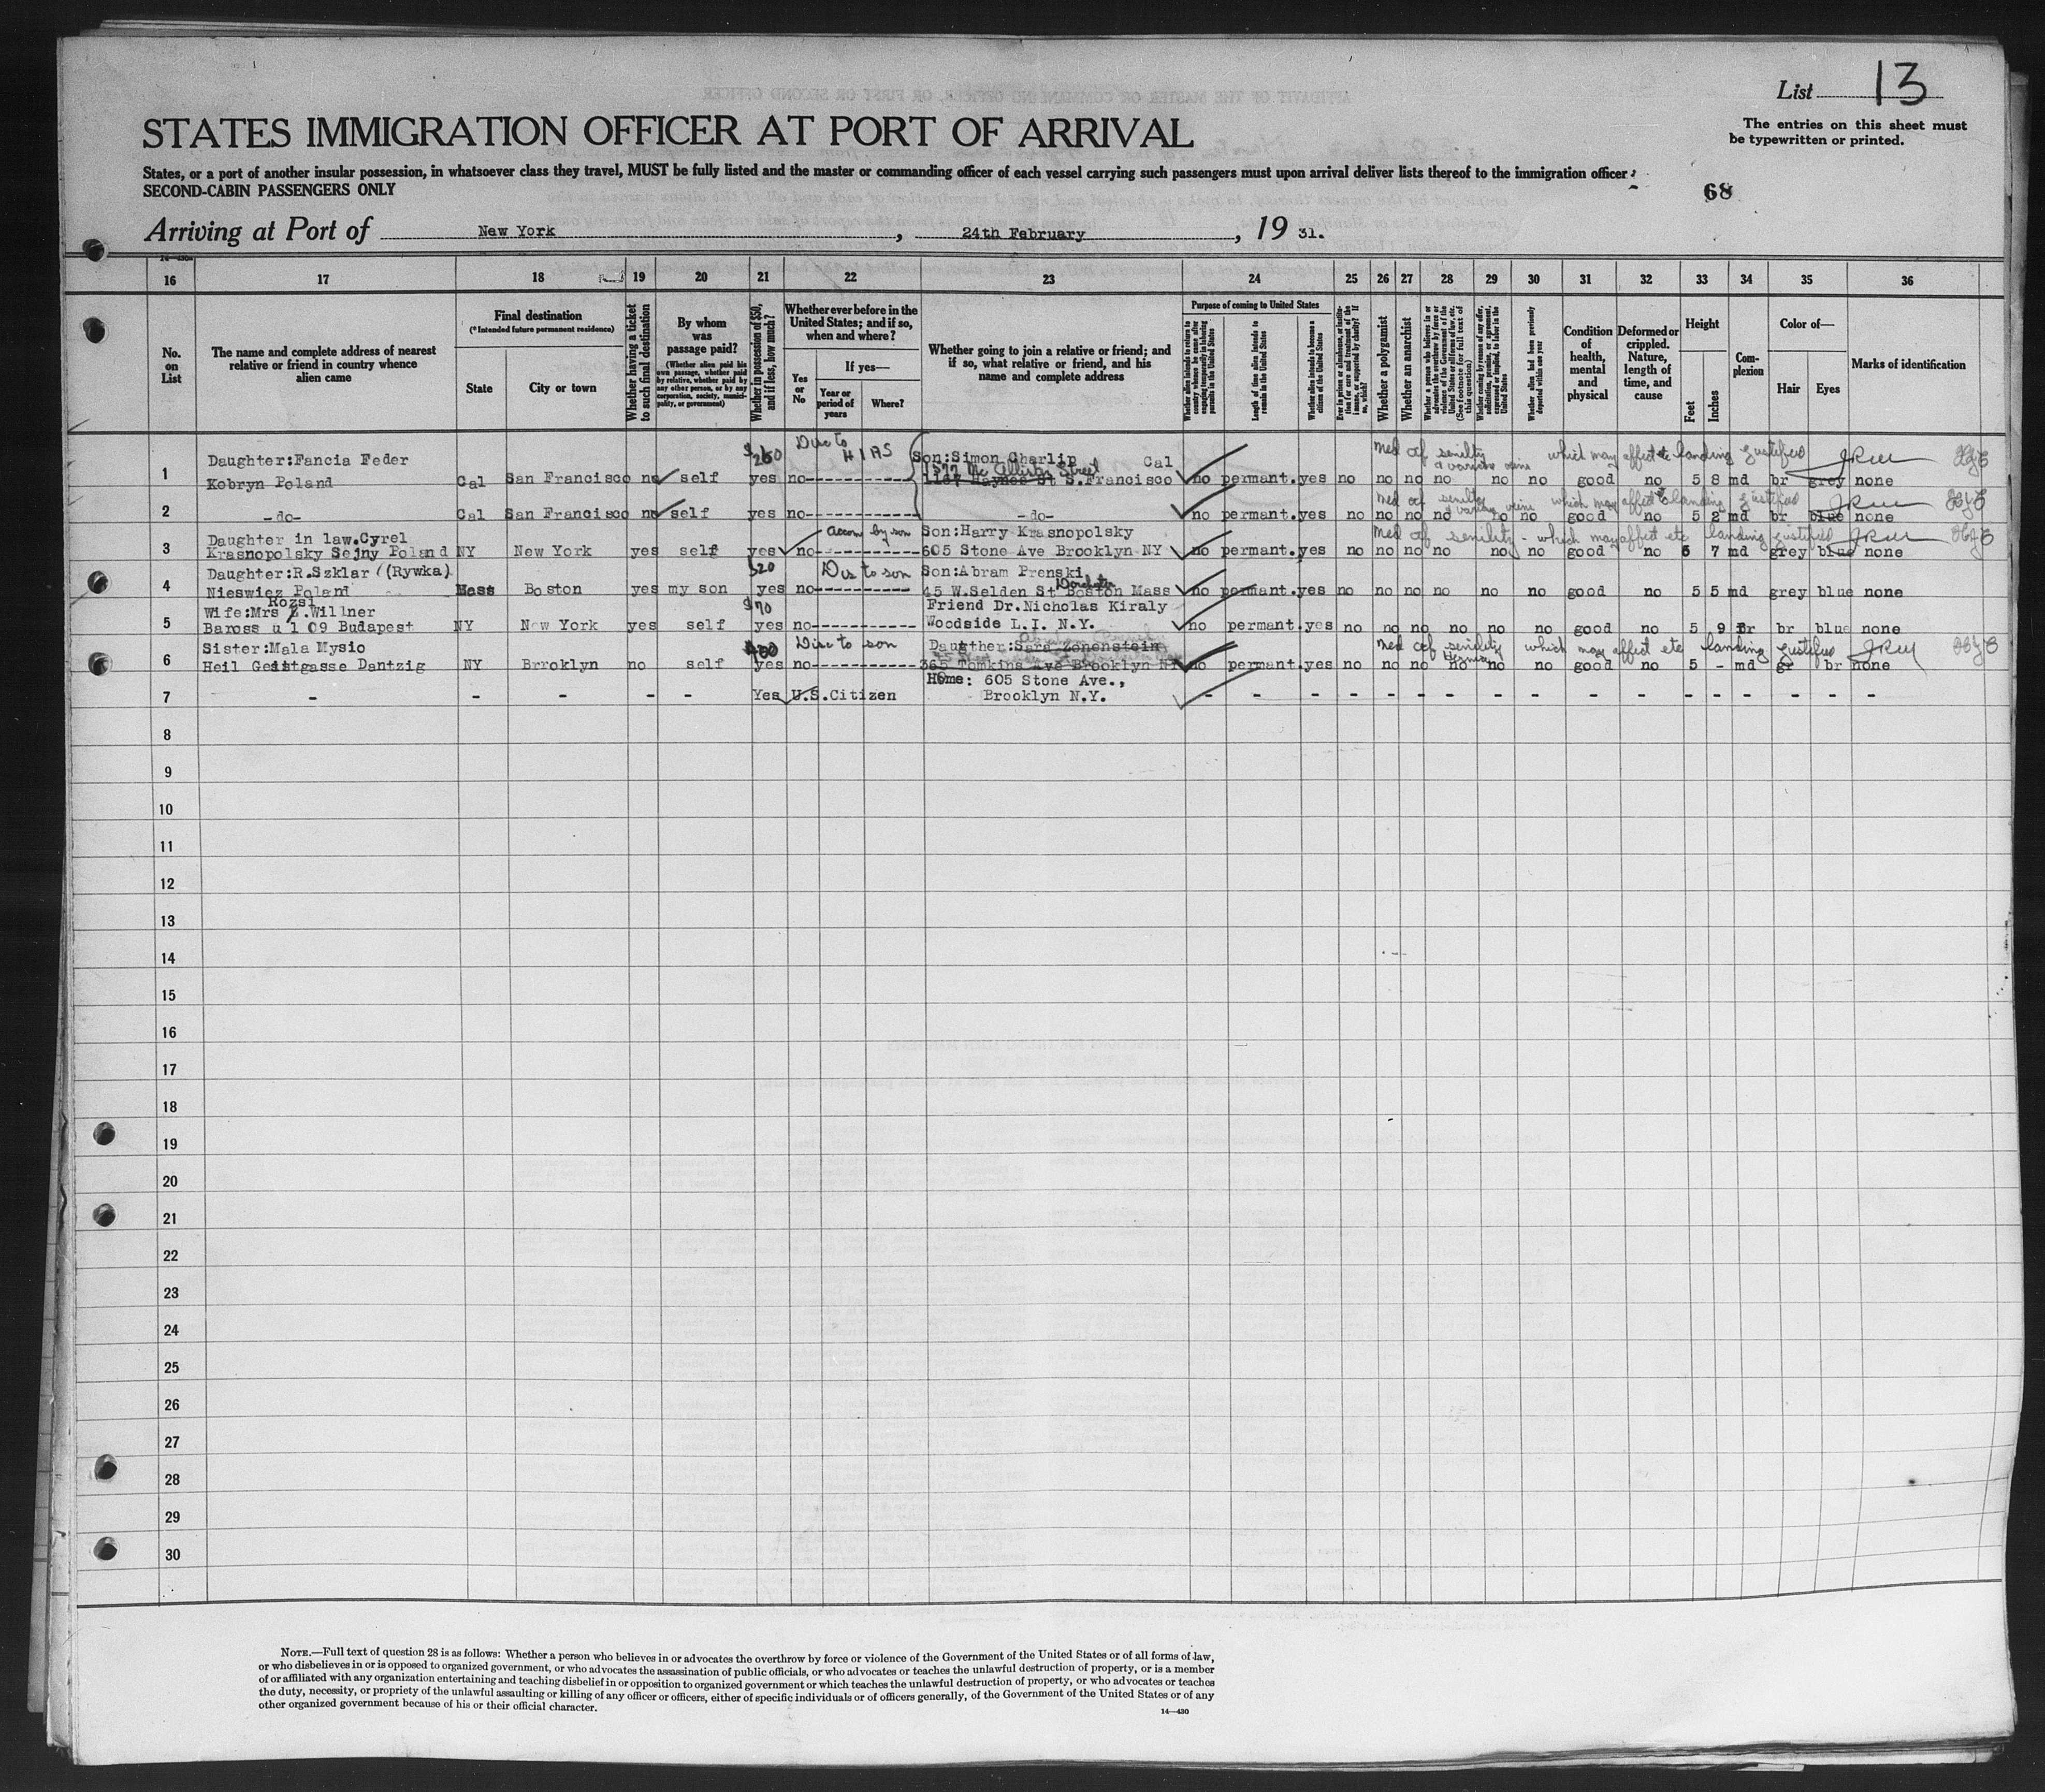 List 13
The entries on this sheet must
be typewritten or printed.
STATES IMMIGRATION OFFICER AT PORT OF ARRIVAL
States, or a port of another insular possession, in whatsoever class they travel, MUST be fully listed and the master or commanding officer of each vessel carrying such passengers must upon arrival deliver lists thereof to the immigration officer
SECOND-CABIN PASSENGERS ONLY
68
Arriving at Port of New York, 24th February, 19 31.
16 17 18 19 20 21 22 23 24 25 26 27 28 29 30 31 32 33 34 35 36
No. on List
The name and complete address of nearest relative or friend in country whence alien came
Final destination
(*Intended future permanent residence)
State
City or town
Whether having a ticket to such final destination
By whom was passage paid?
(Whether alien paid his own passage, whether paid by relative, whether paid by any other person, or by any corporation, society, municipality, or government)
Whether in possession of $50, and if less, how much?
Whether ever before in the United States; and if so, when and where?
Yes or No
If yes—
Year or period of years
Where?
Whether going to join a relative or friend; and if so, what relative or friend, and his name and complete address
Purpose of coming to United States
Whether alien intends to return to country whence he came after engaging temporarily in laboring pursuits in the United States
Length of time alien intends to remain in the United States
Whether alien intends to become a citizen of the United States
Whether a polygamist
Whether an anarchist
Whether alien had been previously deported within one year
Condition of health, mental and physical
Deformed or crippled. Nature, length of time, and cause
Height
Feet
Inches
Complexion
Color of—
Hair
Eyes
Marks of identification
$260 Disc to HIAS Son:Simon Charlip Cal Med cf senility & varicose veins which may affect etc landing justified
1 Daughter:Fancia Feder
Kobryn Poland Cal San Francisco no self yes no 1577 Mc Allister Street 1187 Haynes St S.Francisco no permant. yes no no no no no no good no 5 8 md br grey none
Med cf senility & varicose veins which may affect etc landing justified
2 -do- Cal San Francisco no self yes no -do- no permant. yes no no no no no no good no 5 2 md br blue none
3 Daughter in law.Cyrel accom by son Son:Harry Krasnopolsky Med cf senility - which may affect etc landing justified
Krasnopolsky Sejny Poland NY New York yes self yes no 605 Stone Ave Brooklyn NY no permant. yes no no no no no no good no 5 7 md grey blue none
4 Daughter:R.Szklar (Rywka) $20 Disc to son Son:Abram Prenski
Nieswiez Poland Mass Boston yes my son yes no 45 W.Selden St Dorchester Boston Mass no permant. yes no no no no no no good no 5 5 md grey blue none
5 Wife:Mrs Rozsi Z.Willner $70 Friend Dr.Nicholas Kiraly
Baross u 109 Budapest NY New York yes self yes no Woodside L.I. N.Y. no permant. yes no no no no no no good no 5 9 br br blue none
6 Sister:Mala Mysio Disc to son Daugther:Sara Zonenstein Med cf senility which may affect etc landing justified
Heil Geistgasse Dantzig NY Brroklyn no self yes no 365 Tomkins Ave Brooklyn NY no permant. yes no no no no no no good no 5 - md gr br none
Home: 605 Stone Ave.,
7 - - - - - Yes U.S.Citizen Brooklyn N.Y. - - - - - - - - - - - - - - - -
8
9
10
11
12
13
14
15
16
17
18
19
20
21
22
23
24
25
26
27
28
29
30
NOTE.—Full text of question 28 is as follows: Whether a person who believes in or advocates the overthrow by force or violence of the Government of the United States or of all forms of law,
or who disbelieves in or is opposed to organized government, or who advocates the assassination of public officials, or who advocates or teaches the unlawful destruction of property, or is a member
of or affiliated with any organization entertaining and teaching disbelief in or opposition to organized government or which teaches the unlawful destruction of property, or who advocates or teaches
the duty, necessity, or propriety of the unlawful assaulting or killing of any officer or officers, either of specific individuals or of officers generally, of the Government of the United States or of any
other organized government because of his or their official character.
14—430